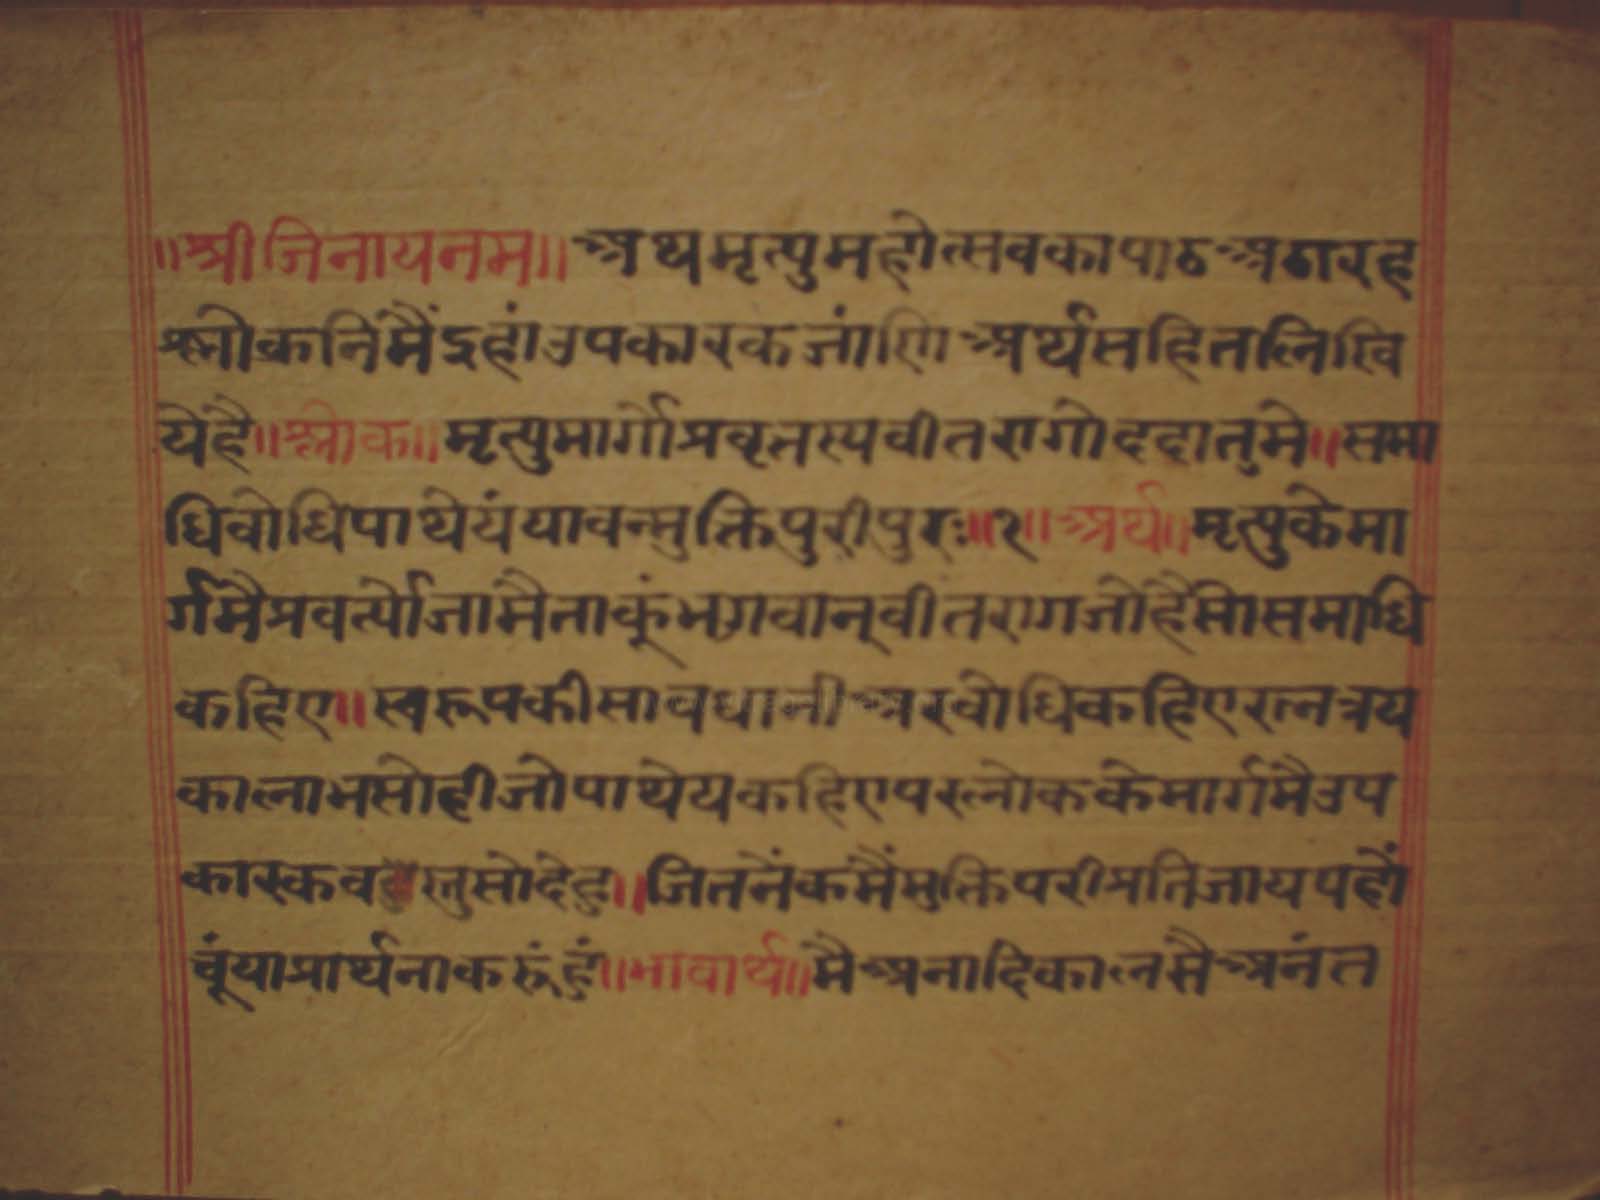 ॥श्रीजिनायनम॥अथमृत्युमहोत्सवकापाठअठारह
श्लोकनिमैंइहांउपकारकजांणिअर्थसहितलिखि
येहै॥श्लोक॥मृत्युमार्गोप्रवृतस्यवीतरागोददातुमे॥समा
धिवोधिपाथेयंयावन्मुक्तिपुरीपुरः॥१॥अर्थ॥मृत्युकेमा
र्गमैप्रवर्त्योजोमैताकूंभगवान्वीतरागजोहैसोसमाधि
कहिए॥स्वरूपकीसावधानीअरवोधिकहिएरत्नत्रय
कालाभसोहीजोपाथेयकहिएपरलोककेमार्गमैउप
कारकवस्तुसोदेहु॥जितनेंकमैंमुक्तिपरीप्रतिजायपहों
चूंयाप्रार्थनाकरूंहूं॥भावार्थ॥मैअनादिकालसैअनंत